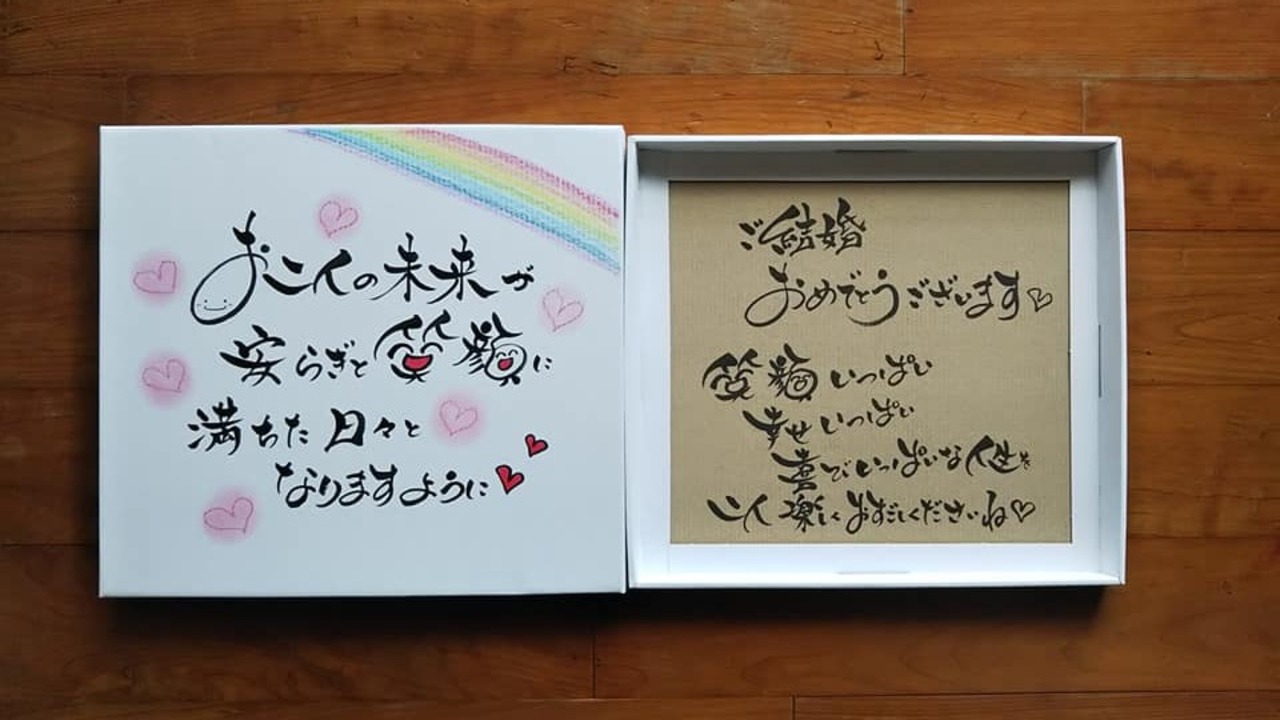 お二人の未来が
安らぎと笑顔に
満ちた日々と
なりますように
ご結婚
おめでとうございます
笑顔いっぱい
幸せいっぱい
喜びいっぱいな人生を
二人楽しくおすごしくださいね